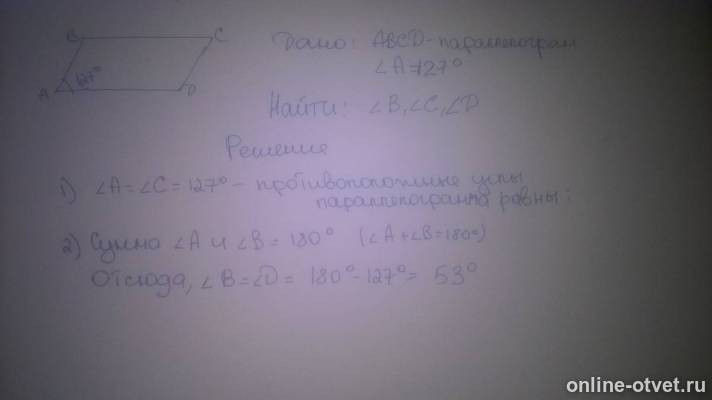 B C
127°
A D
Дано: ABCD - параллелограм
∠A=127°
Найти: ∠B, ∠C, ∠D
Решение
1) ∠A=∠C=127° - противоположные углы
параллелограмма равны;
2) Сумма ∠A и ∠B = 180° (∠A+∠B=180°)
Отсюда, ∠B=∠D= 180°-127°= 53°
online-otvet.ru